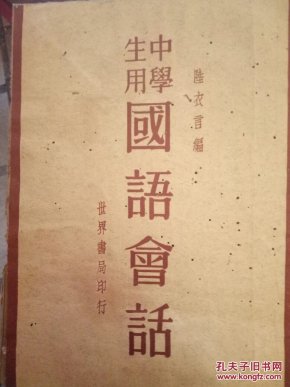 陸衣言編
中學
生用
國語會話
世界書局印行
孔夫子旧书网